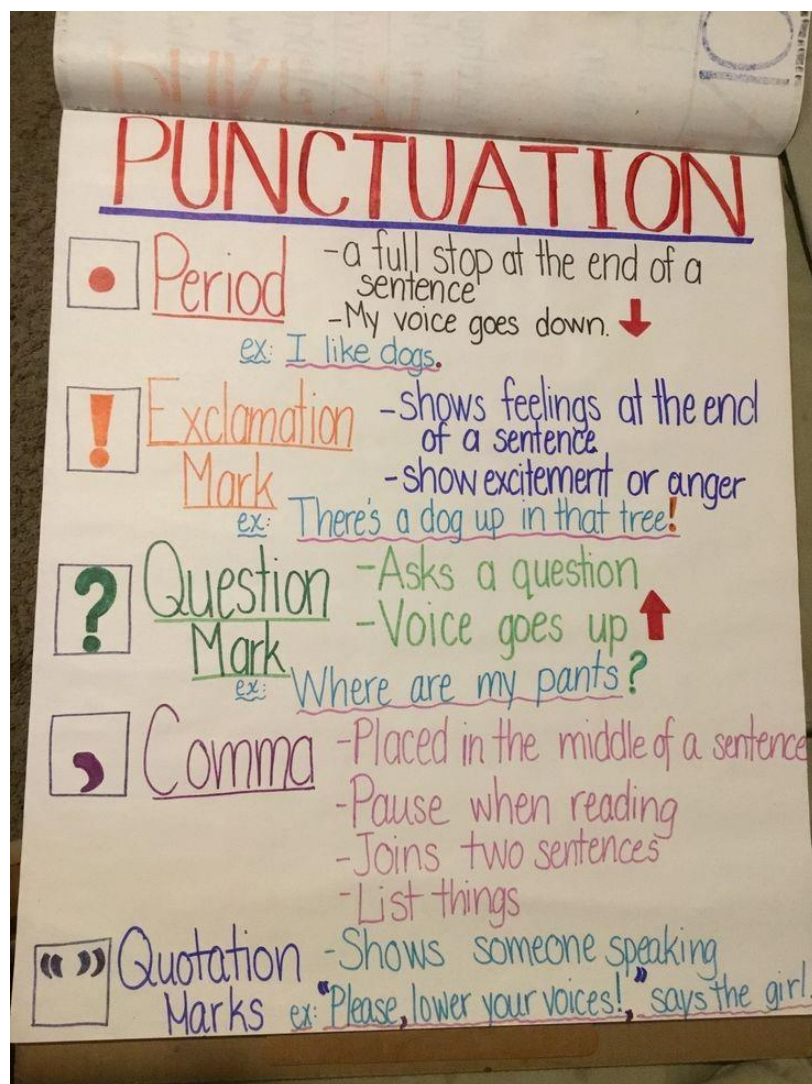 PUNCTUATION
. Period -a full stop at the end of a
sentence
-My voice goes down.
ex: I like dogs.
! Exclamation -shows feelings at the end
of a sentence
Mark -show excitement or anger
ex: There's a dog up in that tree!
? Question -Asks a question
Mark -Voice goes up
ex: Where are my pants?
, Comma -Placed in the middle of a sentence
-Pause when reading
-Joins two sentences
-List things
“ ” Quotation -Shows someone speaking
Marks ex: "Please, lower your voices!," says the girl.